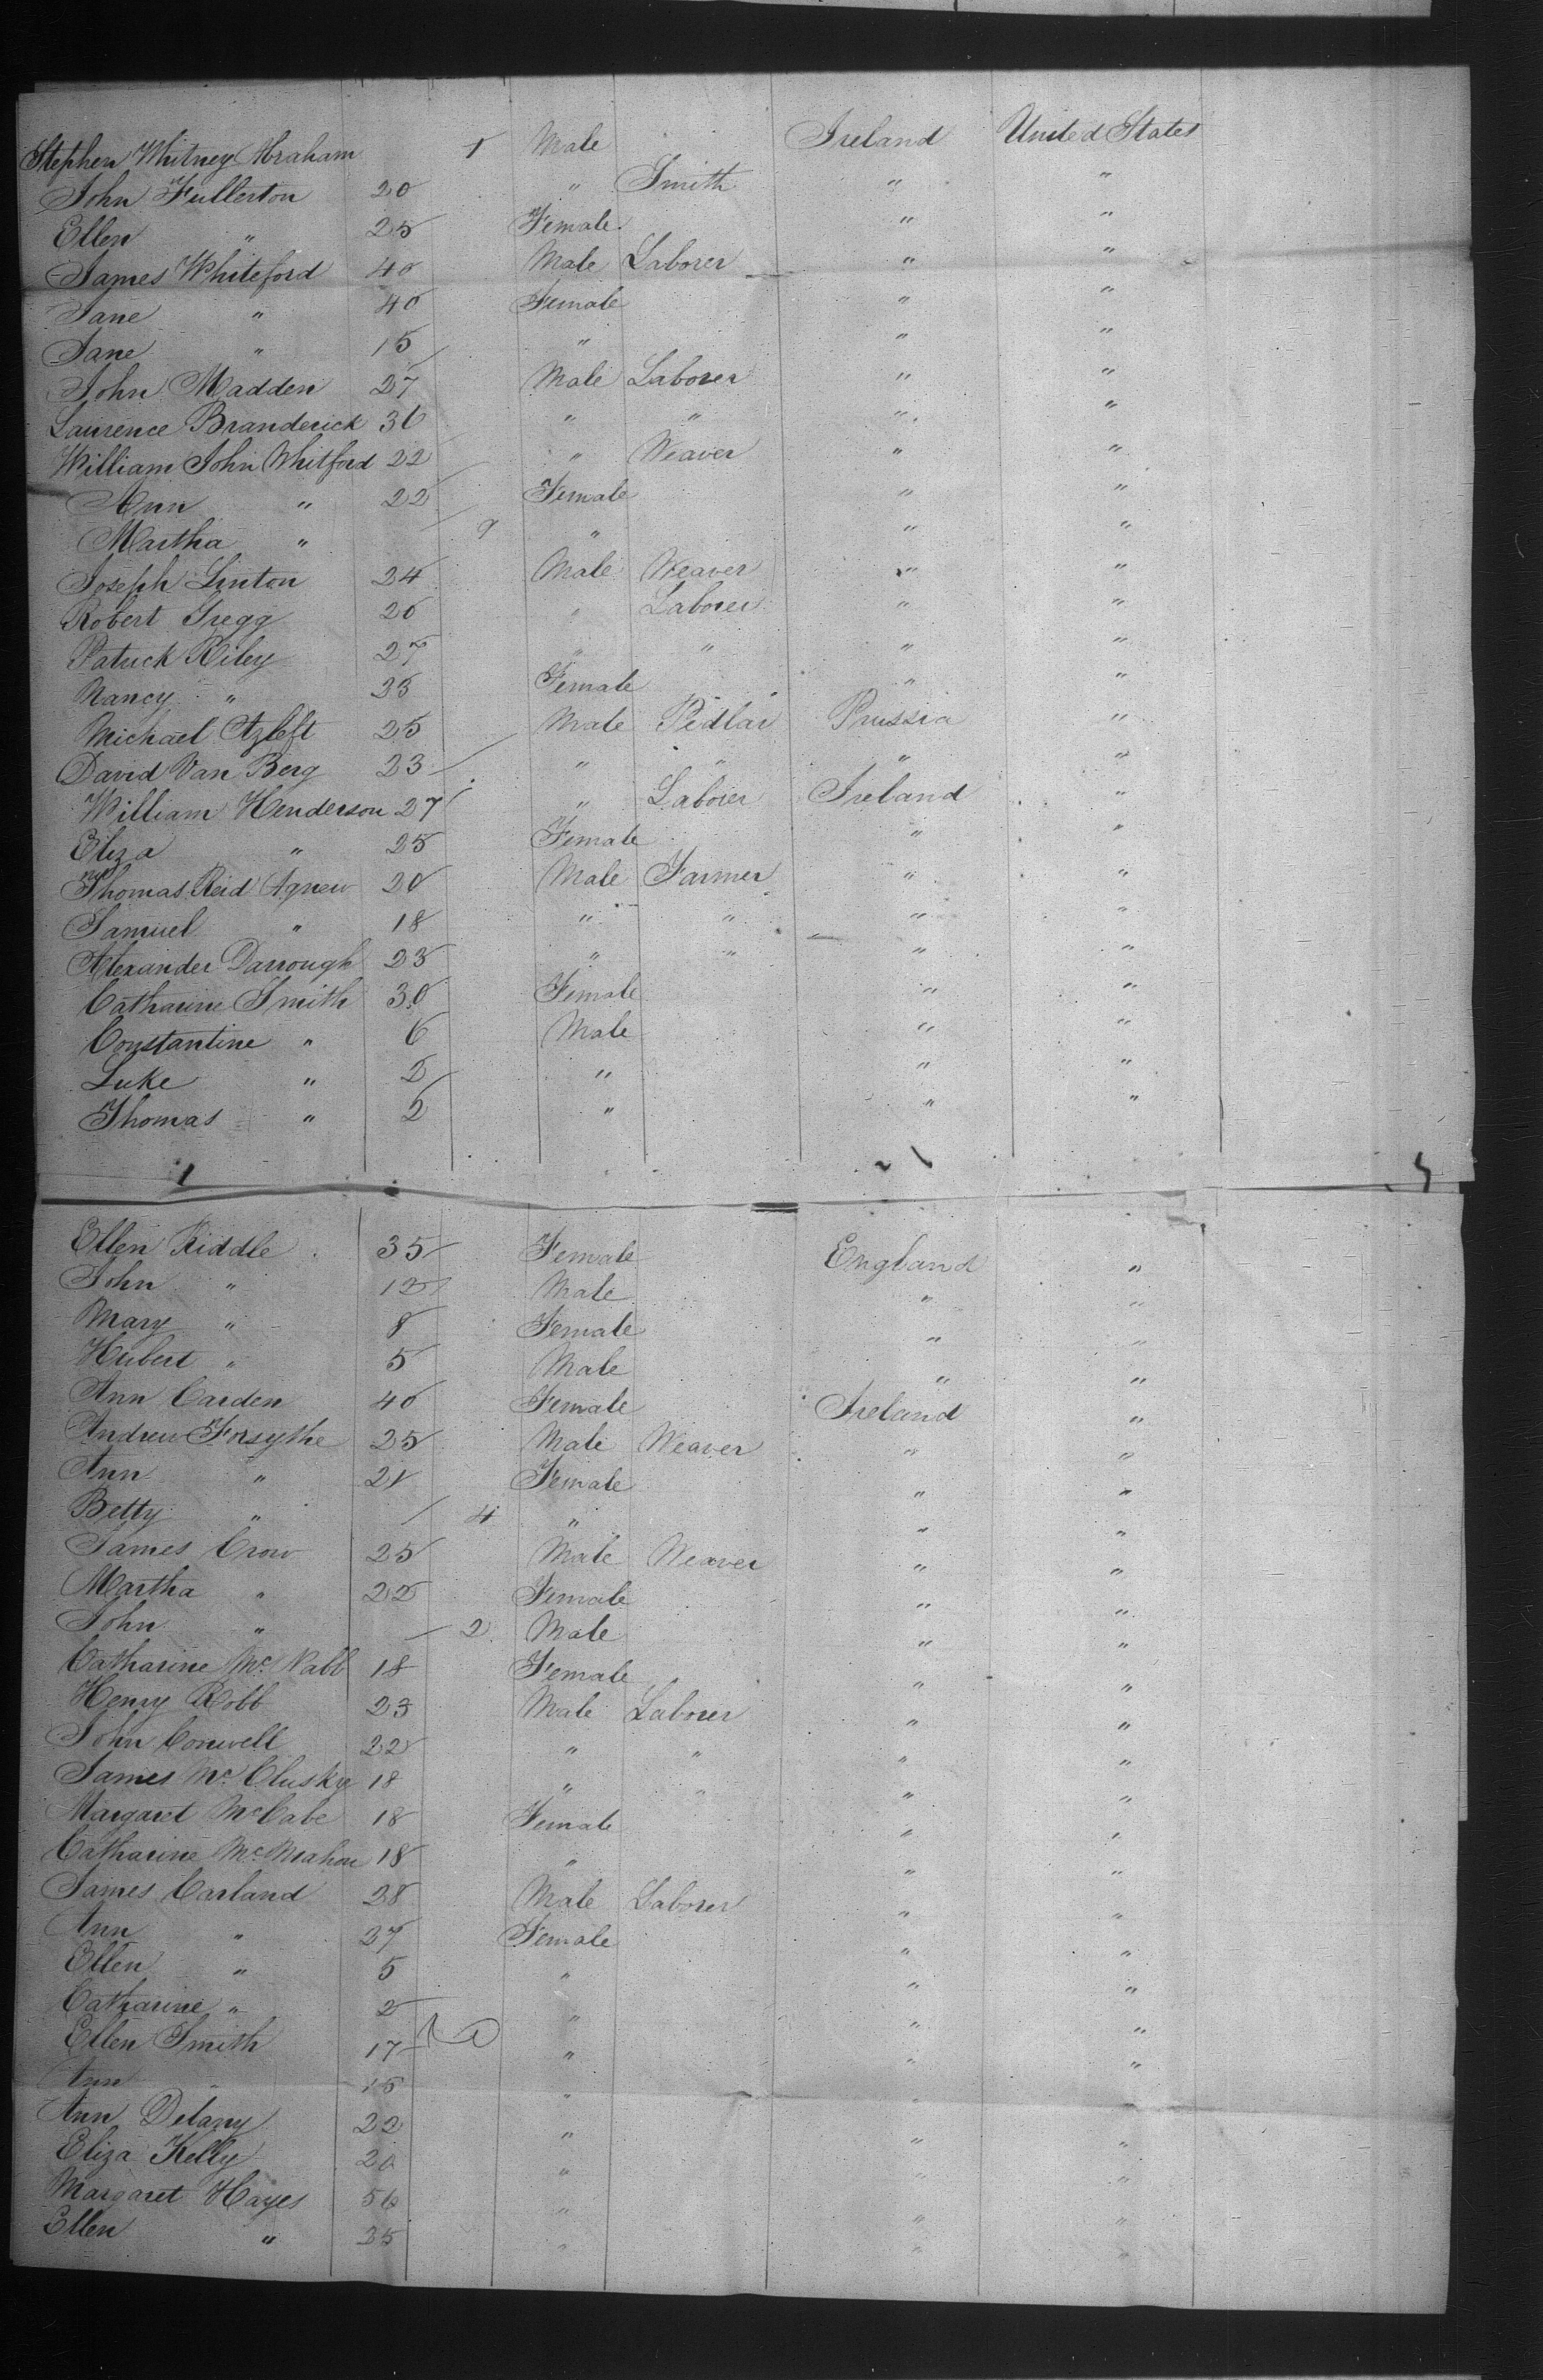 Stephen Whitney Abraham 1 Male Ireland United States
John Fullerton 20 " Smith " "
Ellen " 25 Female " "
James Whiteford 40 Male Laborer " "
Jane " 40 Female " "
Jane " 15 " " "
John Madden 27 Male Laborer " "
Laurence Branderick 36 " " " "
William John Whitford 22 " Weaver " "
Ann " 22 Female " "
Martha " 9 " " "
Joseph Linton 24 Male Weaver " "
Robert Gregg 26 " Laborer " "
Patrick Riley 27 " " " "
Nancy " 23 Female " "
Michael 25 Male Pedlar Prussia "
David Van Berg 23 " " " "
William Henderson 27 " Laborer Ireland "
Eliza " 25 Female " "
Thomas Reid Agnew 20 Male Farmer " "
Samuel " 18 " " " "
Alexander Darrough 23 " " " "
Catharine Smith 30 Female " "
Constantine " 6 Male " "
Luke " 2 " " "
Thomas " 2 " " "
Ellen Riddle 35 Female England "
John " 12 Male " "
Mary " 8 Female " "
Hubert " 5 Male " "
Ann Carden 40 Female Ireland "
Andrew Forsythe 25 Male Weaver " "
Ann " 21 Female " "
Betty " 4 " " "
James Crow 25 Male Weaver " "
Martha " 22 Female " "
John " 2 Male " "
Catharine Mc Nabb 18 Female " "
Henry Robb 23 Male Laborer " "
John Conwell 22 " " " "
James Mc Clusky 18 " " " "
Margaret McCabe 18 Female " "
Catharine McMahon 18 " " "
James Carland 28 Male Laborer " "
Ann " 27 Female " "
Ellen " 5 " " "
Catharine " 2 " " "
Ellen Smith 17 " " "
Ann " 15 " " "
Ann Delany 22 " " "
Eliza Kelly 20 " " "
Margaret Hayes 56 " " "
Ellen " 35 " " "